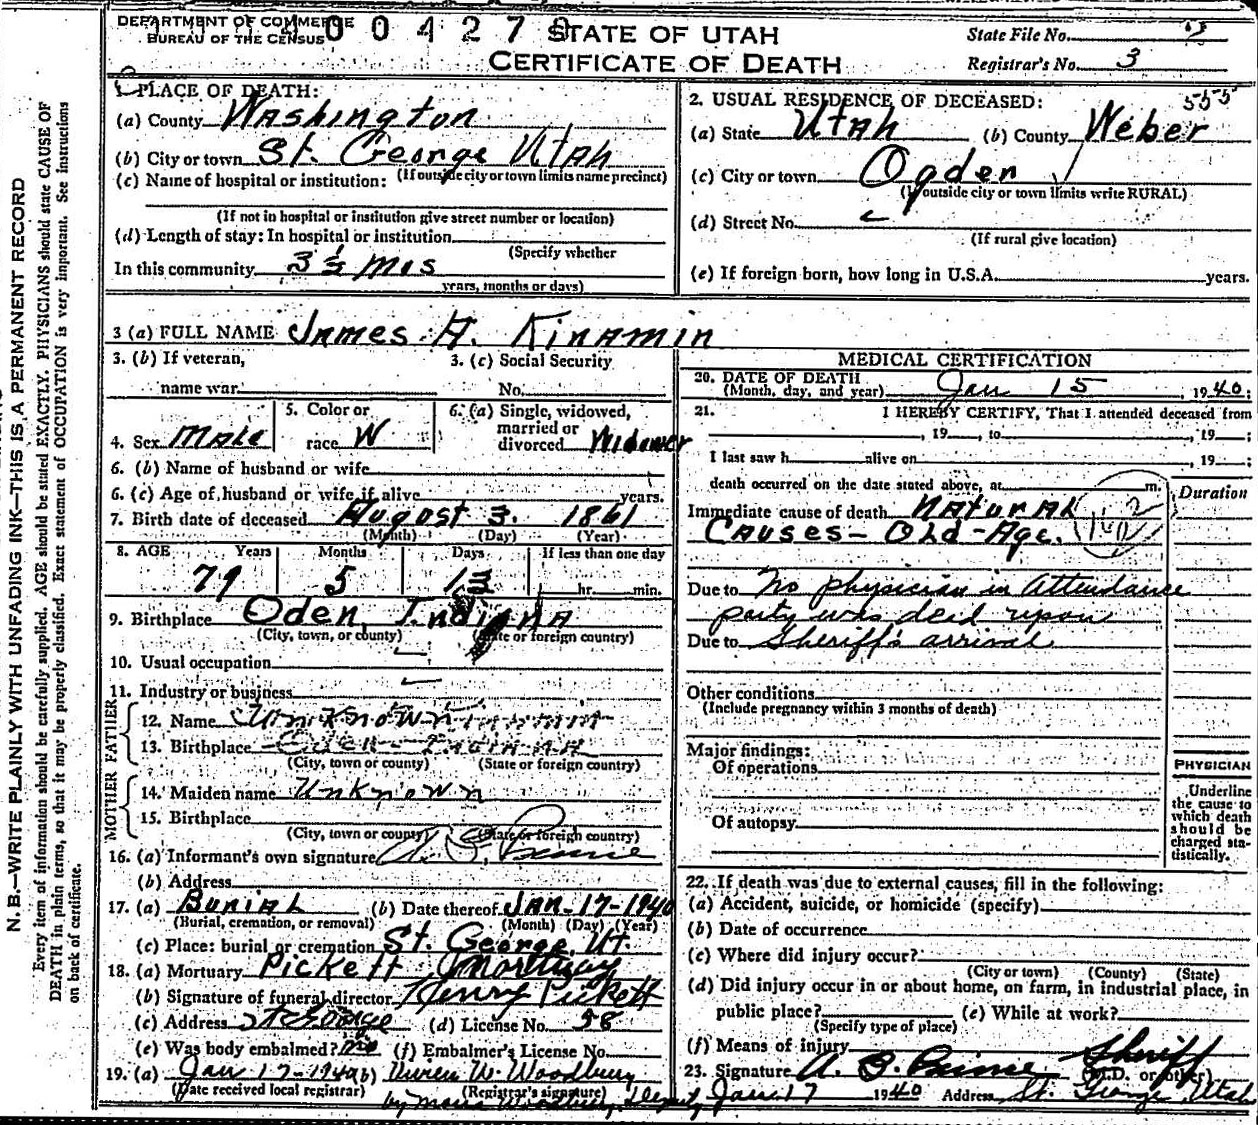 N. B.—WRITE PLAINLY WITH UNFADING INK—THIS IS A PERMANENT RECORD
Every item of information should be carefully supplied. AGE should be stated EXACTLY. PHYSICIANS should state CAUSE OF
DEATH in plain terms, so that it may be properly classified. Exact statement of OCCUPATION is very important. See instructions
on back of certificate.
DEPARTMENT OF COMMERCE
BUREAU OF THE CENSUS
0 0 4 2 7
STATE OF UTAH
CERTIFICATE OF DEATH
State File No.
Registrar's No. 3
1. PLACE OF DEATH:
(a) County Washington
(b) City or town St. George Utah
(If outside city or town limits name precinct)
(c) Name of hospital or institution:
(If not in hospital or institution give street number or location)
(d) Length of stay: In hospital or institution
(Specify whether
In this community 3 ½ Mos
years, months or days)
2. USUAL RESIDENCE OF DECEASED: 555
(a) State Utah (b) County Weber
(c) City or town Ogden
(If outside city or town limits write RURAL)
(d) Street No.
(If rural give location)
(e) If foreign born, how long in U.S.A. years.
3 (a) FULL NAME James A. Kinamin
3. (b) If veteran,
name war
3. (c) Social Security
No.
4. Sex Male
5. Color or
race W
6. (a) Single, widowed,
married or
divorced Widower
6. (b) Name of husband or wife
6. (c) Age of husband or wife if alive years.
7. Birth date of deceased August 3. 1861
(Month) (Day) (Year)
8. AGE Years Months Days If less than one day
79 5 hr. min.
9. Birthplace Oden, Indiana
(City, town, or county) (State or foreign country)
10. Usual occupation
11. Industry or business
FATHER
12. Name Unknown
13. Birthplace Oden Indiana
(City, town or county) (State or foreign country)
MOTHER
14. Maiden name Unknown
15. Birthplace
(City, town or county) (State or foreign country)
16. (a) Informant's own signature A. B. Prince
(b) Address
17. (a) Burial (b) Date thereof Jan-17-1940
(Burial, cremation, or removal) (Month) (Day) (Year)
(c) Place: burial or cremation St. George, Ut.
18. (a) Mortuary Pickett Mortuary
(b) Signature of funeral director Henry Pickett
(c) Address St George (d) License No. 58
(e) Was body embalmed? no (f) Embalmer's License No.
19. (a) Jan 17-1940 (b) Vivien W. Woodbury
(Date received local registrar) (Registrar's signature)
by Woodbury, Deputy
MEDICAL CERTIFICATION
20. DATE OF DEATH
(Month, day, and year) Jan 15, 1940;
21. I HEREBY CERTIFY, That I attended deceased from
, 19 , to , 19 ;
I last saw h alive on , 19 ;
death occurred on the date stated above, at m.
Duration
Immediate cause of death Natural
Causes - Old-Age.
Due to No physician in Attendance
party was dead upon
Due to Sheriff's arrival
Other conditions
(Include pregnancy within 3 months of death)
Major findings:
Of operations
Of autopsy
PHYSICIAN
Underline
the cause to
which death
should be
charged sta-
tistically.
22. If death was due to external causes, fill in the following:
(a) Accident, suicide, or homicide (specify)
(b) Date of occurrence
(c) Where did injury occur?
(City or town) (County) (State)
(d) Did injury occur in or about home, on farm, in industrial place, in
public place? (e) While at work?
(Specify type of place)
(f) Means of injury
23. Signature A. B. Prince Sheriff
(M.D. or other)
Jan. 17 1940 Address St. George, Utah